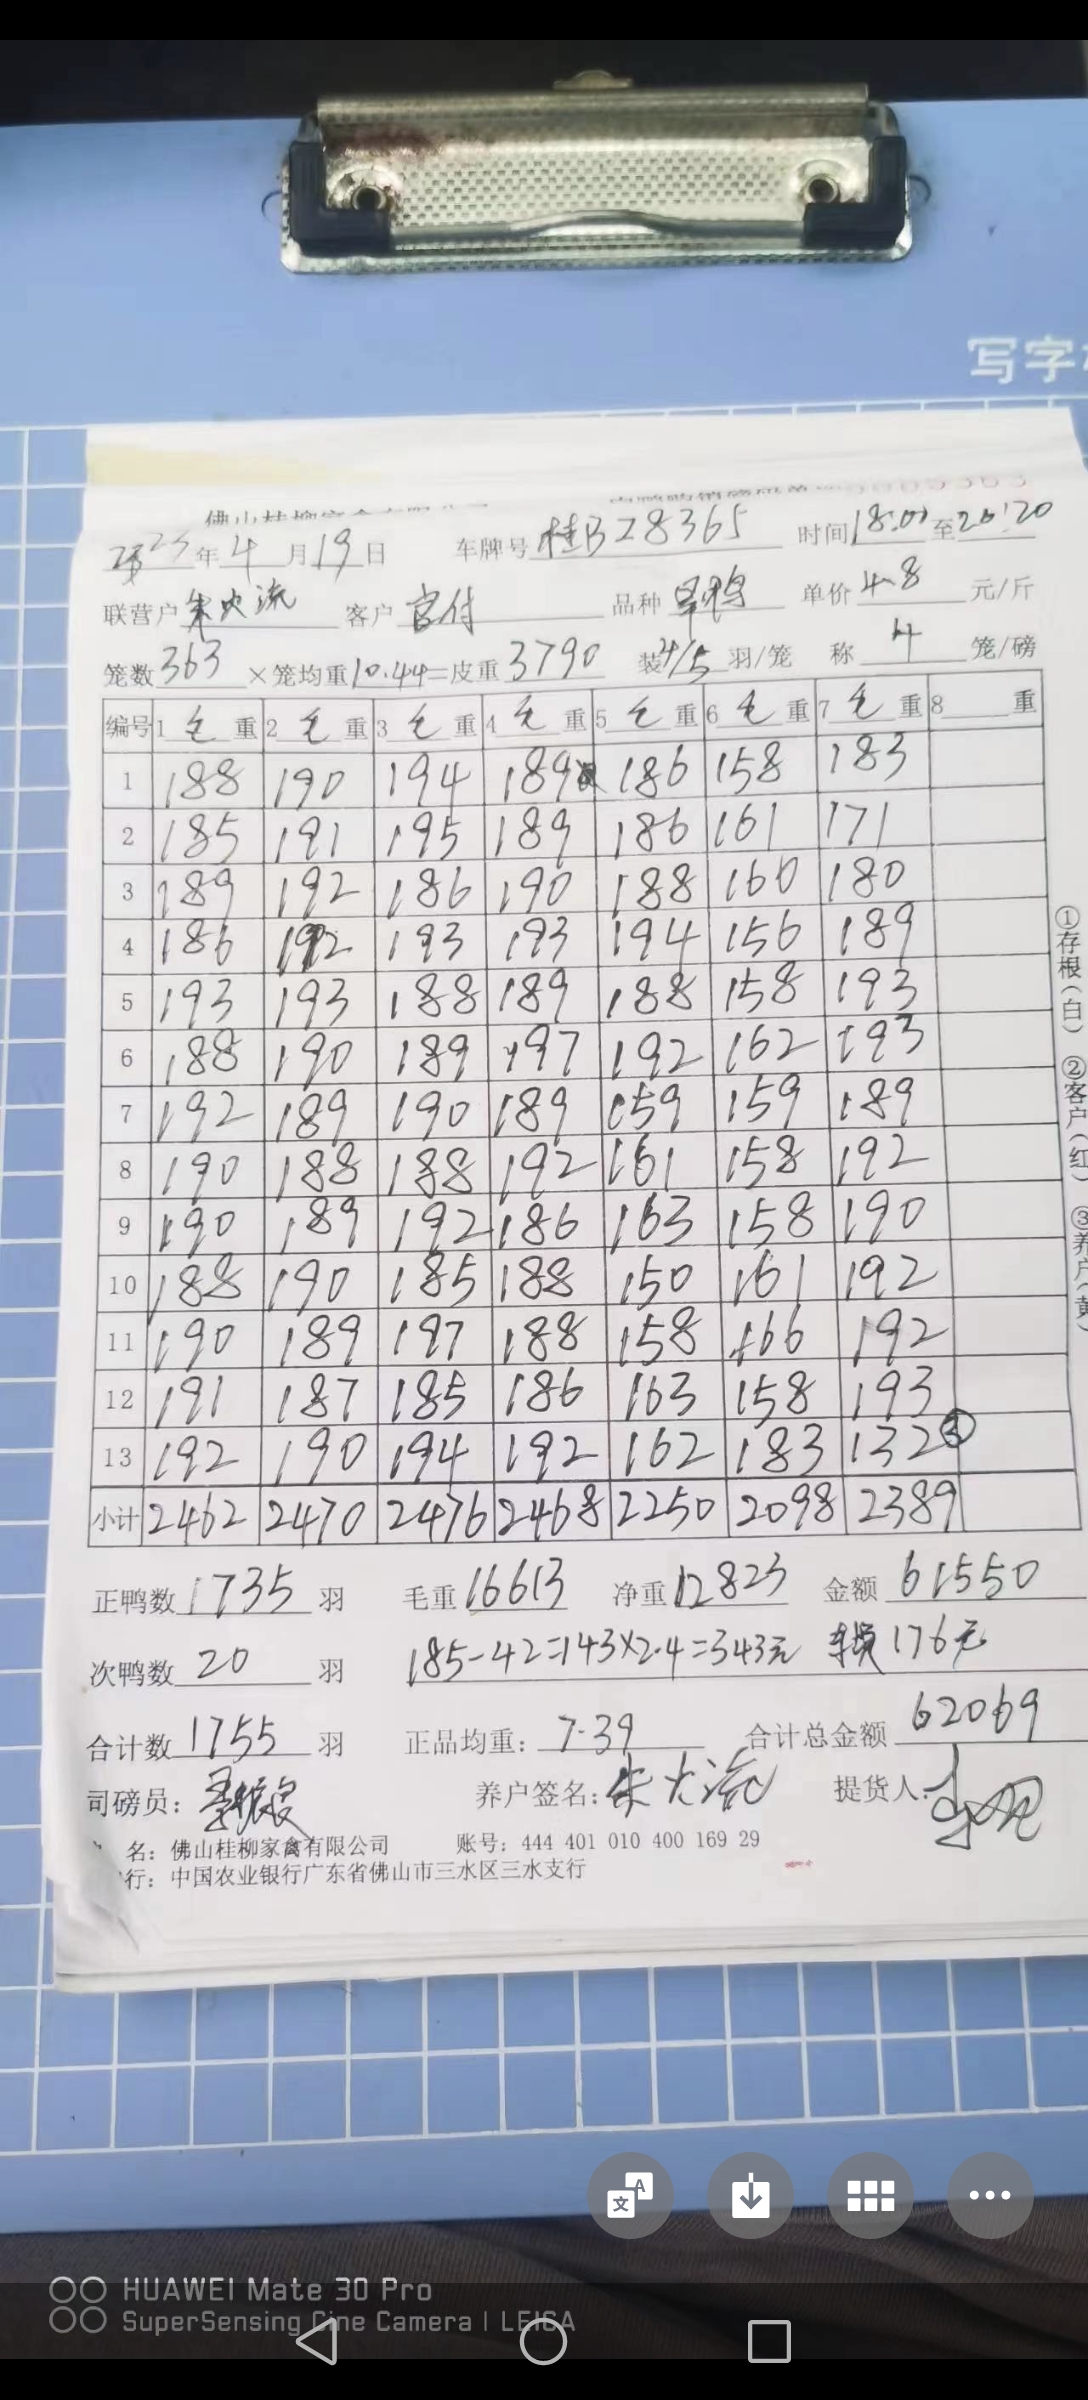 写字
佛山桂柳家禽有限公司
2023年4月19日 车牌号桂BZ8365 时间18:00至20:20
联营户朱火流 客户 官付 品种 旱鸭 单价4.8元/斤
笼数363×笼均重10.44=皮重3790 装4/5羽/笼 称4笼/磅
编号 1毛重 2毛重 3毛重 4毛重 5毛重 6毛重 7毛重 8 重
1 188 190 194 189 186 158 183
2 185 191 195 189 186 161 171
3 189 192 186 190 188 160 180
4 186 192 193 193 194 156 189
5 193 193 188 189 188 158 193
6 188 190 189 197 192 162 193
7 192 189 190 189 159 159 189
8 190 188 188 192 161 158 192
9 190 189 192 186 163 158 190
10 188 190 185 188 150 161 192
11 190 189 197 188 158 166 192
12 191 187 185 186 163 158 193
13 192 190 194 192 162 183 132
小计 2462 2470 2476 2468 2250 2098 2389
正鸭数1735羽 毛重16613 净重12823 金额61550
次鸭数20羽 185-42=143×2.4=343元 176元
合计数1755羽 正品均重：7.39 合计总金额62069
司磅员： 养户签名：朱火流 提货人：
名：佛山桂柳家禽有限公司 账号：444 401 010 400 169 29
行：中国农业银行广东省佛山市三水区三水支行
①存根（白） ②客户（红） ③养户（黄）
HUAWEI Mate 30 Pro
SuperSensing Cine Camera | LEICA